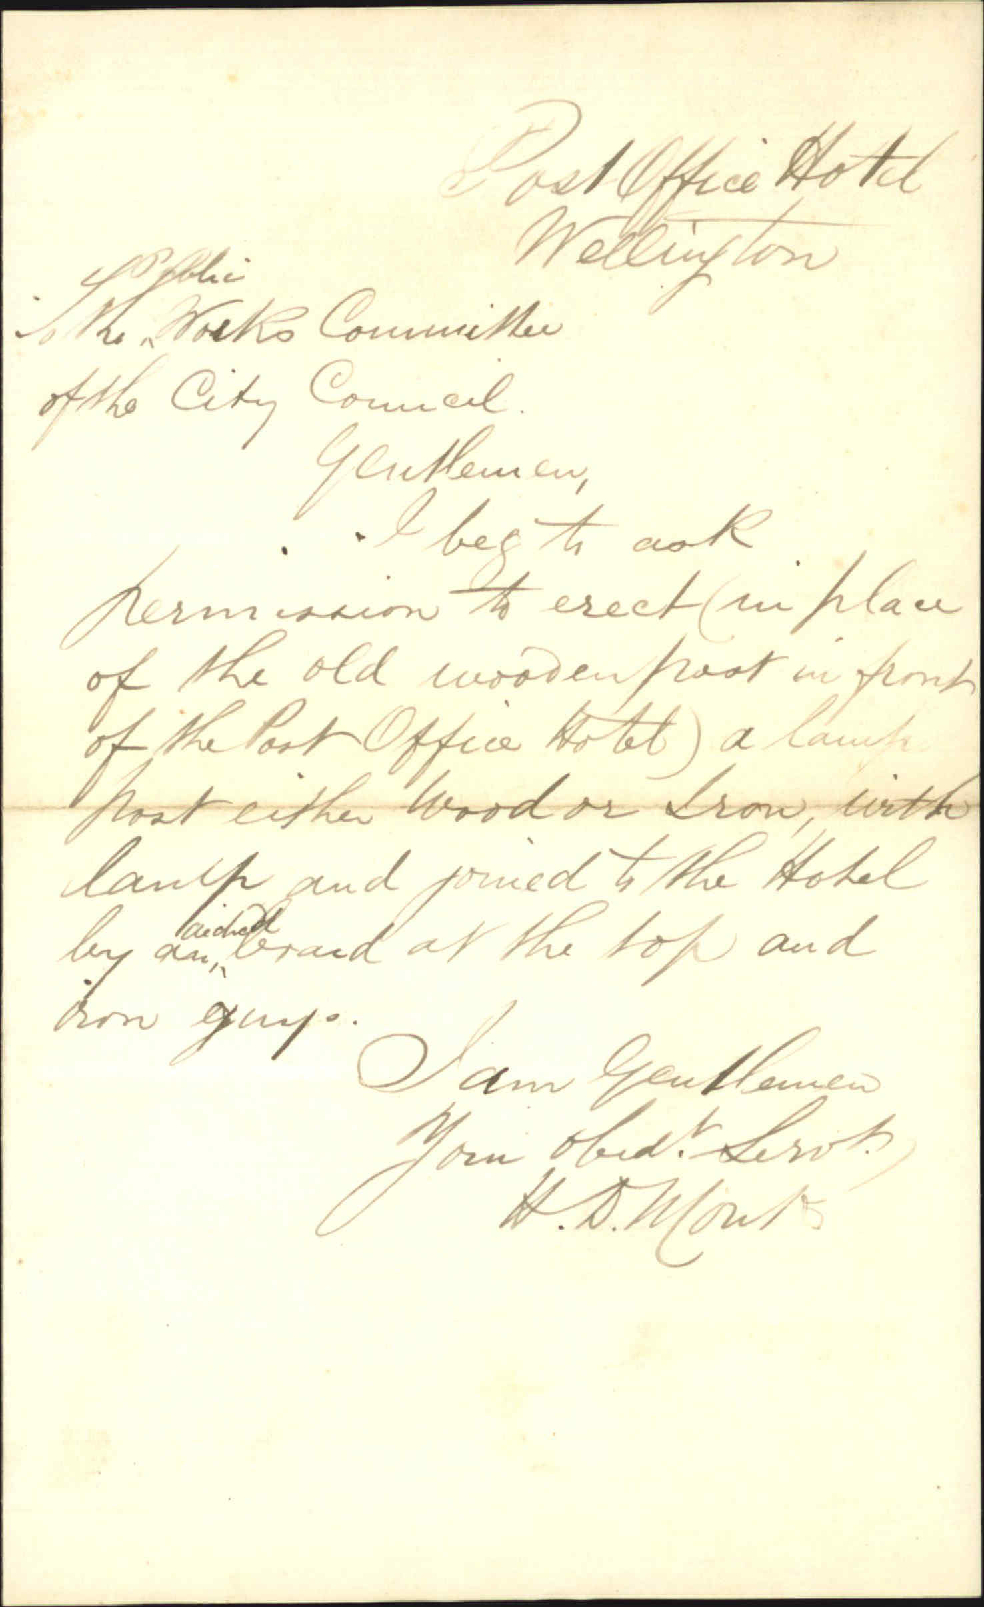 Post Office Hotel
Wellington
Public
To the Works Committee
of the City Council.
Gentlemen,
I beg to ask
permission to erect (in place
of the old wooden post in front
of the Post Office Hotel) a lamp
post either Wood or Iron, with
lamp and joined to the Hotel
arched
by an board at the top and
iron guys.
I am Gentlemen
Your obedt. Servt.
H. D. Mount